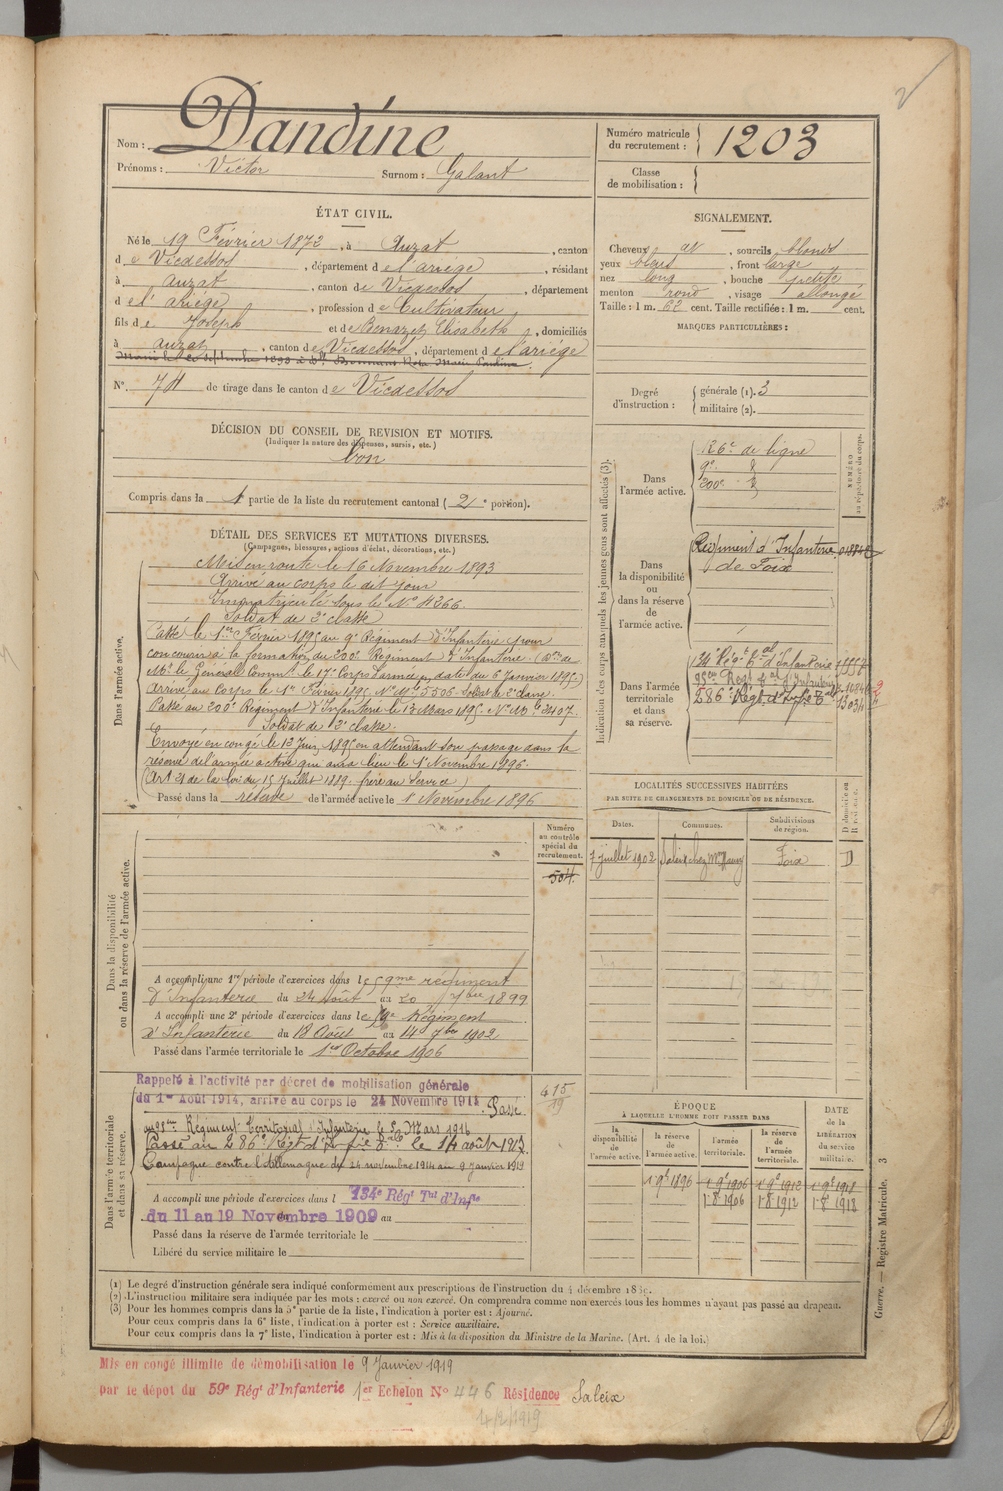 Nom : Dandine
Prénoms : Victor Surnom : Galant
Numéro matricule du recrutement : 1203
Classe de mobilisation :
ÉTAT CIVIL.
Né le 19 Février 1872, à Auzat, canton
de Vicdessos, département de l'ariège, résidant
à auzat, canton de Vicdessos, département
de l'ariège, profession de Cultivateur
fils de Joseph et de Benazet Elisabeth, domiciliés
à auzat, canton de Vicdessos, département de l'ariège
N° 74 de tirage dans le canton de Vicdessos
SIGNALEMENT.
Cheveux , sourcils blonds
yeux bleus, front large
nez long, bouche petite
menton rond, visage allongé
Taille : 1 m. 62 cent. Taille rectifiée : 1 m. cent.
MARQUES PARTICULIÈRES :
Degré d'instruction : générale (1). 3
militaire (2).
DÉCISION DU CONSEIL DE REVISION ET MOTIFS.
(Indiquer la nature des dispenses, sursis, etc.)
bon
Compris dans la 1 partie de la liste du recrutement cantonal (2e portion).
DÉTAIL DES SERVICES ET MUTATIONS DIVERSES.
(Campagnes, blessures, actions d'éclat, décorations, etc.)
Dans l'armée active.
Mis en route le 16 Novembre 1893
Arrivé au corps le dit jour
Immatriculé sous le N° 4366.
Soldat de 2e classe
Passé le 1er Février 1895 au 9e Régiment d'Infanterie pour
concourir à la formation du 200e Régiment d'Infanterie.
Mr le Général Commt le 17e Corps d'armée, date du 6 Janvier 1895.
Arrivé au Corps le 1er Février 1895. N° Mle 5506. Soldat de 2e classe.
Passé au 200e Régiment d'Infanterie le 13 Mars 1895. N° Mle 2407.
Soldat de 2e classe.
Envoyé en congé le 13 Juin 1895 en attendant son passage dans la
réserve de l'armée active qui aura lieu le 1er Novembre 1896.
(Art 21 de la loi du 15 Juillet 1889. frère au Service)
Passé dans la réserve de l'armée active le 1er Novembre 1896
Indication des corps auxquels les jeunes gens sont affectés (3).
NUMÉRO au répertoire du corps.
Dans l'armée active.
126e de ligne
9e
200e
Dans la disponibilité ou dans la réserve de l'armée active.
Régiment d'Infanterie
de Foix
Dans l'armée territoriale et dans sa réserve.
134 Régt Tal d'Infanterie
95em Régt Tal d'Infanterie
286e Régt d'Infie Tale
LOCALITÉS SUCCESSIVES HABITÉES
PAR SUITE DE CHANGEMENTS DE DOMICILE OU DE RÉSIDENCE.
Dates. Communes. Subdivisions de région. D. domicile ou R. résidence.
7 juillet 1902 Saleix chez Mme Foix D
Dans la disponibilité ou dans la réserve de l'armée active.
Numéro au contrôle spécial du recrutement.
504
A accompli une 1re période d'exercices dans le 59me régiment
d'Infanterie du 24 Août au 20 7bre 1899
A accompli une 2e période d'exercices dans le Régiment
d'Infanterie du 18 Août au 14 7bre 1902
Passé dans l'armée territoriale le 1er Octobre 1906
Dans l'armée territoriale et dans sa réserve.
Rappelé à l'activité par décret de mobilisation générale
du 1er Août 1914, arrivé au corps le 24 Novembre 1914. Passé
au 95em Régiment Territorial d'Infanterie le 5 Mars 1916
Passé au 286e Régt d'Infie Tale le 14 août 1917.
Campagne contre l'Allemagne du 24 novembre 1914 au 9 janvier 1919
A accompli une période d'exercices dans l 134e Régt Tal d'Infie
du 11 au 19 Novembre 1909 au
Passé dans la réserve de l'armée territoriale le
Libéré du service militaire le
615
19
ÉPOQUE
À LAQUELLE L'HOMME DOIT PASSER DANS
la disponibilité de l'armée active. la réserve de l'armée active. l'armée territoriale. la réserve de l'armée territoriale.
DATE DE LA LIBÉRATION du service militaire.
1 9bre 1896 1 9e 1906 1 9e 1912 1 9e 1918
1-8-1906 1-8-1912 1-8-1918
(1) Le degré d'instruction générale sera indiqué conformément aux prescriptions de l'instruction du 4 décembre 1889.
(2) L'instruction militaire sera indiquée par les mots : exercé ou non exercé. On comprendra comme non exercés tous les hommes n'ayant pas passé au drapeau.
(3) Pour les hommes compris dans la 5e partie de la liste, l'indication à porter est : Ajourné.
Pour ceux compris dans la 6e liste, l'indication à porter est : Service auxiliaire.
Pour ceux compris dans la 7e liste, l'indication à porter est : Mis à la disposition du Ministre de la Marine. (Art. 4 de la loi.)
Guerre. — Registre Matricule. 3
Mis en congé illimité de démobilisation le 9 Janvier 1919
par le dépôt du 59e Régt d'Infanterie 1er Echelon N° 446 Résidence Saleix
14/2/1919